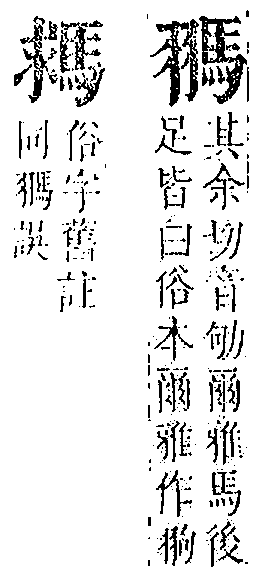 其余切音劬爾雅馬後
足皆白俗本爾雅作翑
俗字舊註
同誤